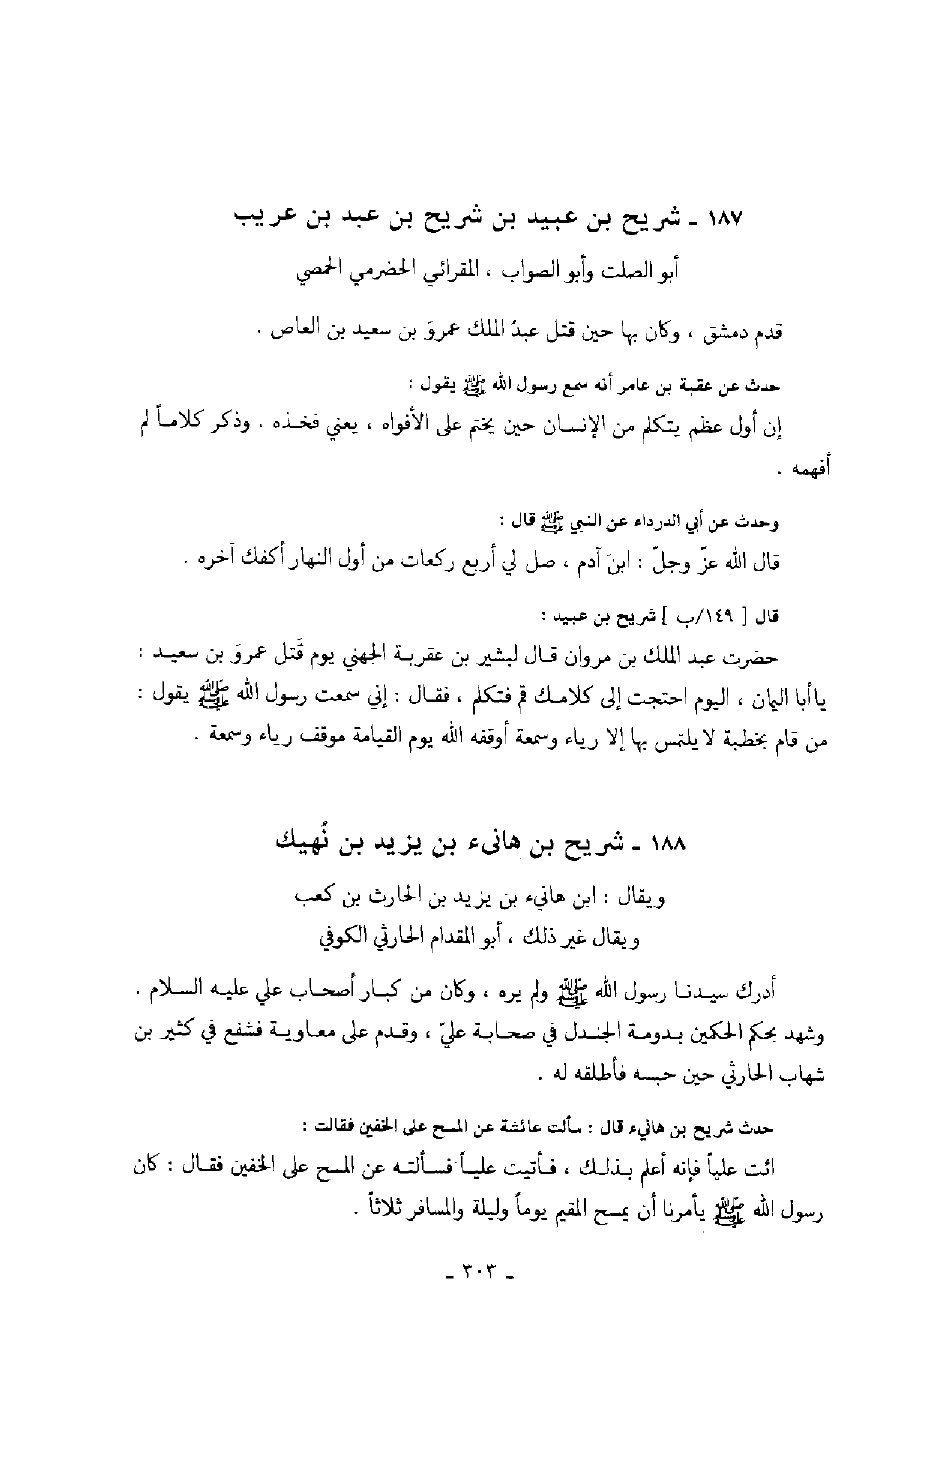 ١٨٧ ـ شريح بن عبيد بن شريح بن عبد بن عريب
أبو الصلت وأبو الصواب ، المقرائي الحضرمي الحمصي
قدم دمشق ، وكان بها حين قتل عبدُ الملك عمروَ بن سعيد بن العاص .
حدث عن عقبة بن عامر أنه سمع رسول الله ﷺ يقول :
إن أول عظم يتكلم من الإنسان حين يختم على الأفواه ، يعني فخذه . وذكر كلاماً لم
أفهمه .
وحدث عن أبي الدرداء عن النبي ﷺ قال :
قال الله عزّ وجلّ : ابنَ آدم ، صل لي أربع ركعات من أول النهار أكفك آخره .
قال [ ١٤٩/ب ] شريح بن عبيد :
حضرت عبد الملك بن مروان قال لبشير بن عقربة الجهني يوم قَتل عمروَ بن سعيد :
يا أبا اليمان ، اليوم احتجت إلى كلامك قم فتكلم ، فقال : إني سمعت رسول الله ﷺ يقول :
من قام بخطبة لا يلتمس بها إلا رياء وسمعة أوقفه الله يوم القيامة موقف رياء وسمعة .
١٨٨ ـ شريح بن هانىء بن يزيد بن نُهيك
ويقال : ابن هانيء بن يزيد بن الحارث بن كعب
ويقال غير ذلك ، أبو المقدام الحارثي الكوفي
أدرك سيدنا رسول الله ﷺ ولم يره ، وكان من كبار أصحاب علي عليه السلام .
وشهد بحكم الحكمين بدومة الجندل في صحابة عليّ ، وقدم على معاوية فشفع في كثير بن
شهاب الحارثي حين حبسه فأطلقه له .
حدث شريح بن هانيء قال : سألت عائشة عن المسح على الخفين فقالت :
ائت علياً فإنه أعلم بذلك ، فأتيت علياً فسألته عن المسح على الخفين فقال : كان
رسول الله ﷺ يأمرنا أن يمسح المقيم يوماً وليلة والمسافر ثلاثاً .
ـ ٣٠٣ ـ